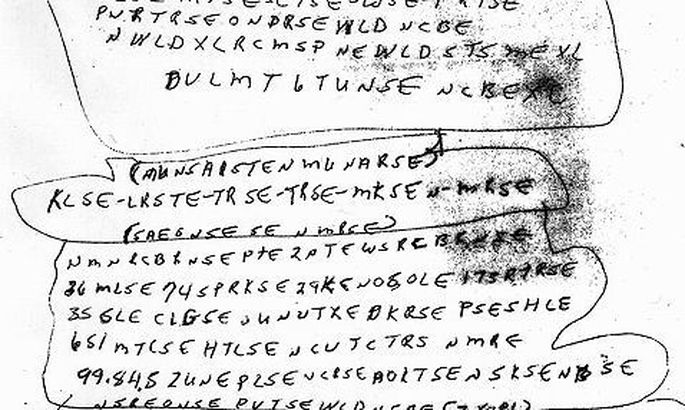 PNRTRSEONDRSEWLD NCBE
NWLDXLRCMSP NEWLD STS MEXL
DULMT6TUNSE NCBEXC
(MUNSAISTEN MU NARSE)
KLSE-LRSTE-TRSE-TRSE-MKSEN-MRSE
(SAEGNSE SE N MRSE)
NMNRCBRNSEPTE2PTEWSRCBRNSE
36 MLSE 74SPRKSE 29KENOSOLE 173RTRSE
35 GLE CLGSE UNUTXE DKRSE PSESHLE
651 MTCSE HTLSE NCUTCTRS NMRE
99.84.5 2UNE PLSE NCRSE AOLTSE NSKSENBSE
NSREONSE PVTSE WLD NCBE (3XORL)